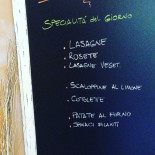 SPECIALITÀ del GIORNO
. LASAGNE
. ROSETE
. LASAGNE VEGET.
. SCALOPPINE AL LIMONE
. COTOLETE
. PATATE AL FORNO
. SPINACI FILANTI